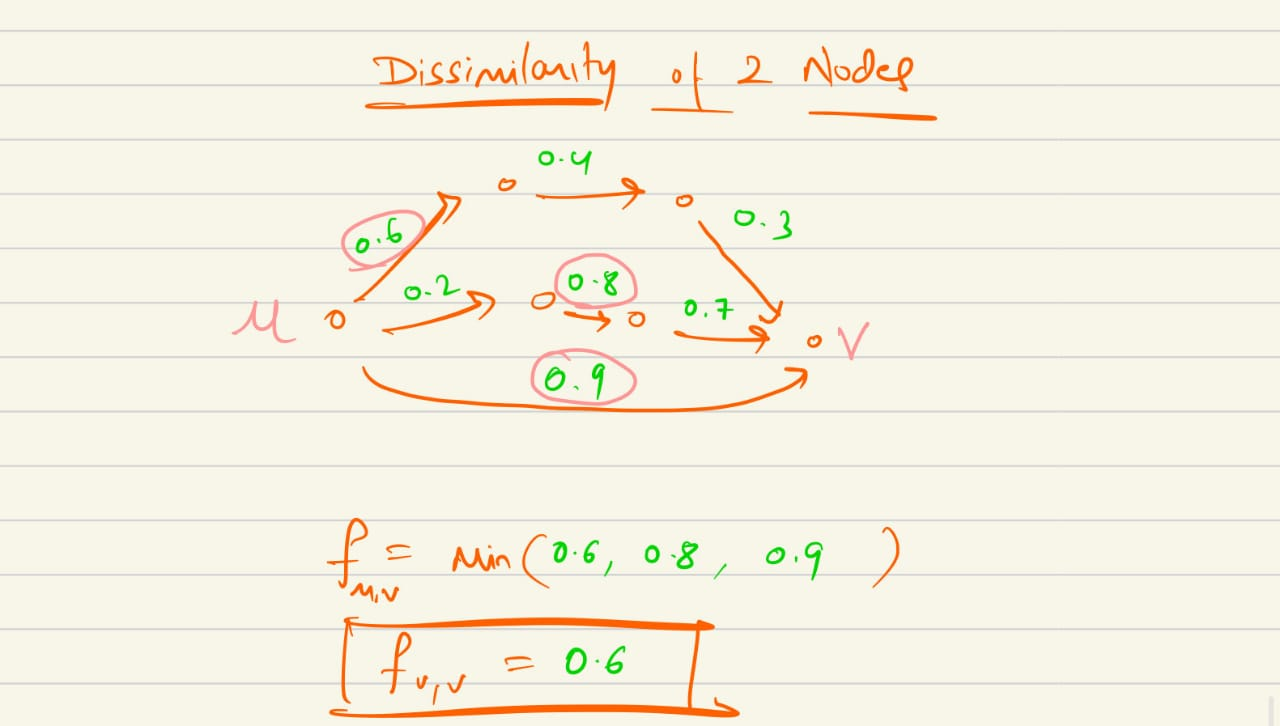 Dissimilarity of 2 Nodes
0.4
0.6
0.3
0.2
0.8
0.7
u
v
0.9
f u,v = Min(0.6, 0.8, 0.9)
f u,v = 0.6